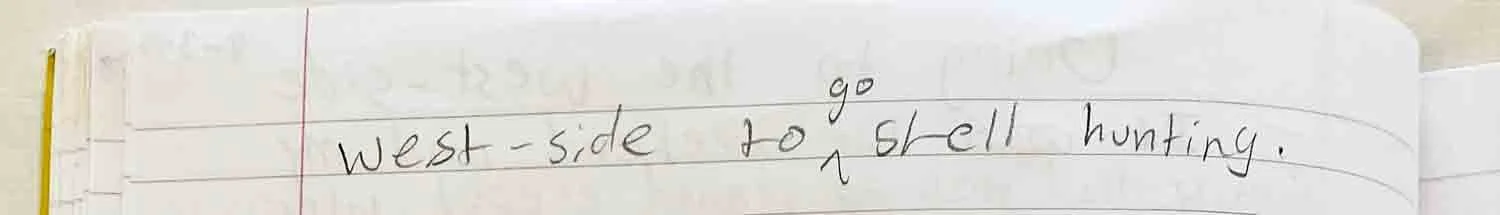 west-side to go shell hunting.